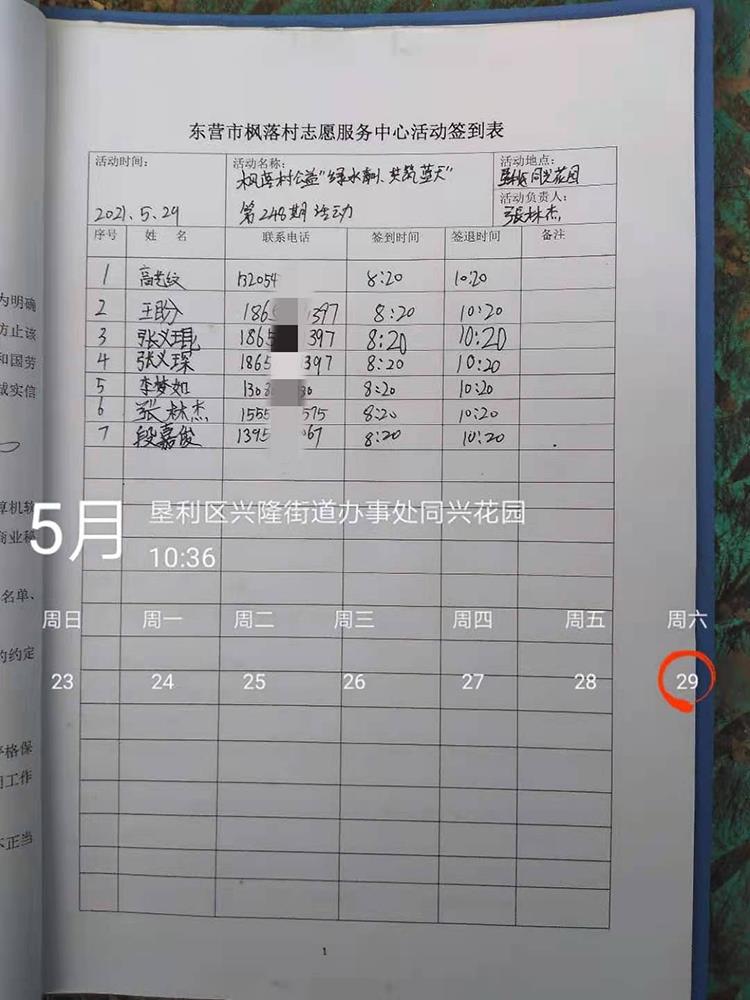 东营市枫落村志愿服务中心活动签到表
活动时间:
2021.5.29
活动名称:
枫落村公益"绿水青山、共筑蓝天"
第248期活动
活动地点:
垦利区同兴花园
活动负责人:
张林杰
序号 姓 名 联系电话 签到时间 签退时间 备注
1 132054 8:20 10:20
2 王盼 1865 397 8:20 10:20
3 张义琨 1865 397 8:20 10:20
4 张义琛 1865 397 8:20 10:20
5 李梦如 130 8:20 10:20
6 张林杰 1555 575 8:20 10:20
7 段嘉俊 1395 67 8:20 10:20
5月
垦利区兴隆街道办事处同兴花园
10:36
周日 周一 周二 周三 周四 周五 周六
23 24 25 26 27 28 29
1
为明确
防止该
和国劳
诚实信
算机软
商业秘
名单、
的约定
格保
工作
不正当